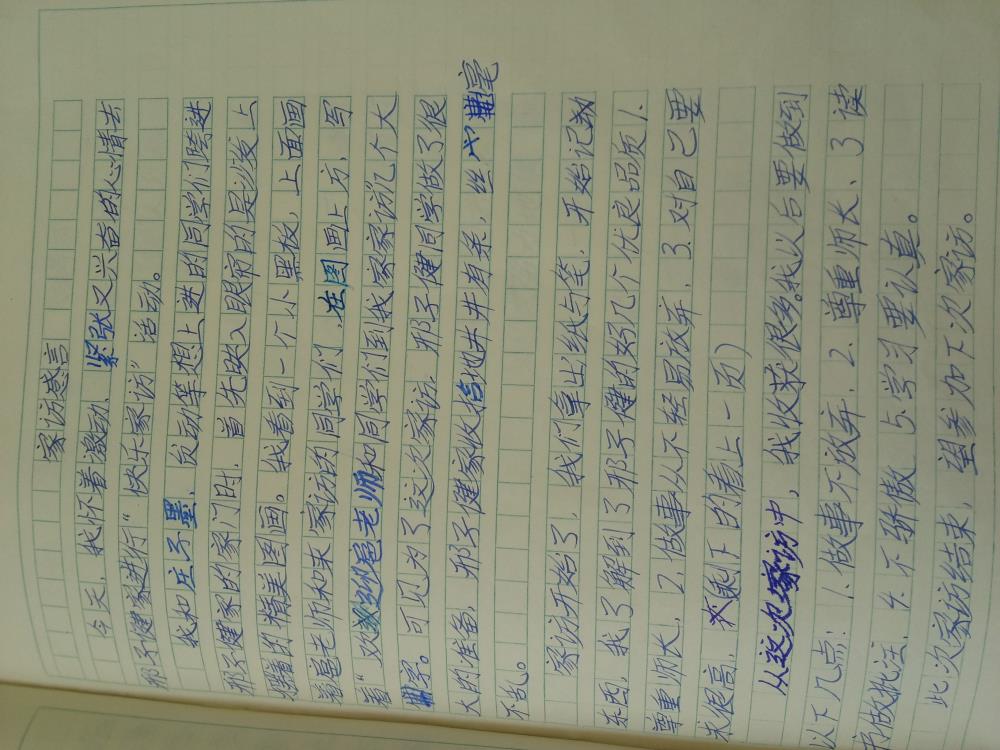 家访感言
今天，我怀着激动、紧张又兴奋的心情去
邢子健家进行“快乐家访”活动。
我和庄子墨，发动等想上进的同学们踏进
邢子健家的家门时，首先映入眼帘的是沙发上
摆着的精美图画。我看到一个小黑板，上面画
着邕老师和来家访的同学们，在图画上方，写
着“欢迎邕老师和同学们到我家家访”几个大
字。可见为了这次家访，邢子健同学做了很
大的准备，邢子健家收拾地井井有条，丝毫
不乱。
家访开始了，我们拿出纸与笔，开始记劝
东西，我了解到了邢子健的好几个优良品质1.
尊重师长，2.做事从不轻易放弃，3.对自己要
求很高，（剩下的看上一页）
从这次家访中，我收获很多。我以后要做到
以下几点：1.做事不放弃，2.尊重师长、3读
书做批注，4.不骄傲 5.学习要认真。
此次家访结束，望参加下次家访。